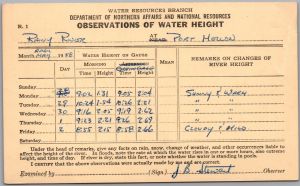 WATER RESOURCES BRANCH
DEPARTMENT OF NORTHERN AFFAIRS AND NATIONAL RESOURCES
R. 1 OBSERVATIONS OF WATER HEIGHT
River AT Port
Month 19 WATER HEIGHT ON GAUGE REMARKS ON CHANGES OF
RIVER HEIGHT
DAY MORNING
Time Height Time Height
Sunday
Monday 28 9.02 1.31 9.05 2.04 Sunny & Warm
Tuesday 29 10.24 1.54 8.36 2.21 " "
Wednesday 30 9.16 2.05 9.19 2.62 " "
Thursday 1 9.23 2.21 9.26 2.69 "
Friday 2 8.55 2.15 8.58 2.66 Cloudy & Mild
Saturday
Under the head of remarks, give any facts on rain, snow, change of weather, or other occurrences liable to
affect the height of the river. In floods, note the rate at which the water rises in one or more hours, also extreme
height, and time of day. If river is dry, state this fact, or note whether the water is standing in pools.
I CERTIFY that the above observations were actually made as set out and are correct.
Examined by (Sign.) J.B. Stewart Observer